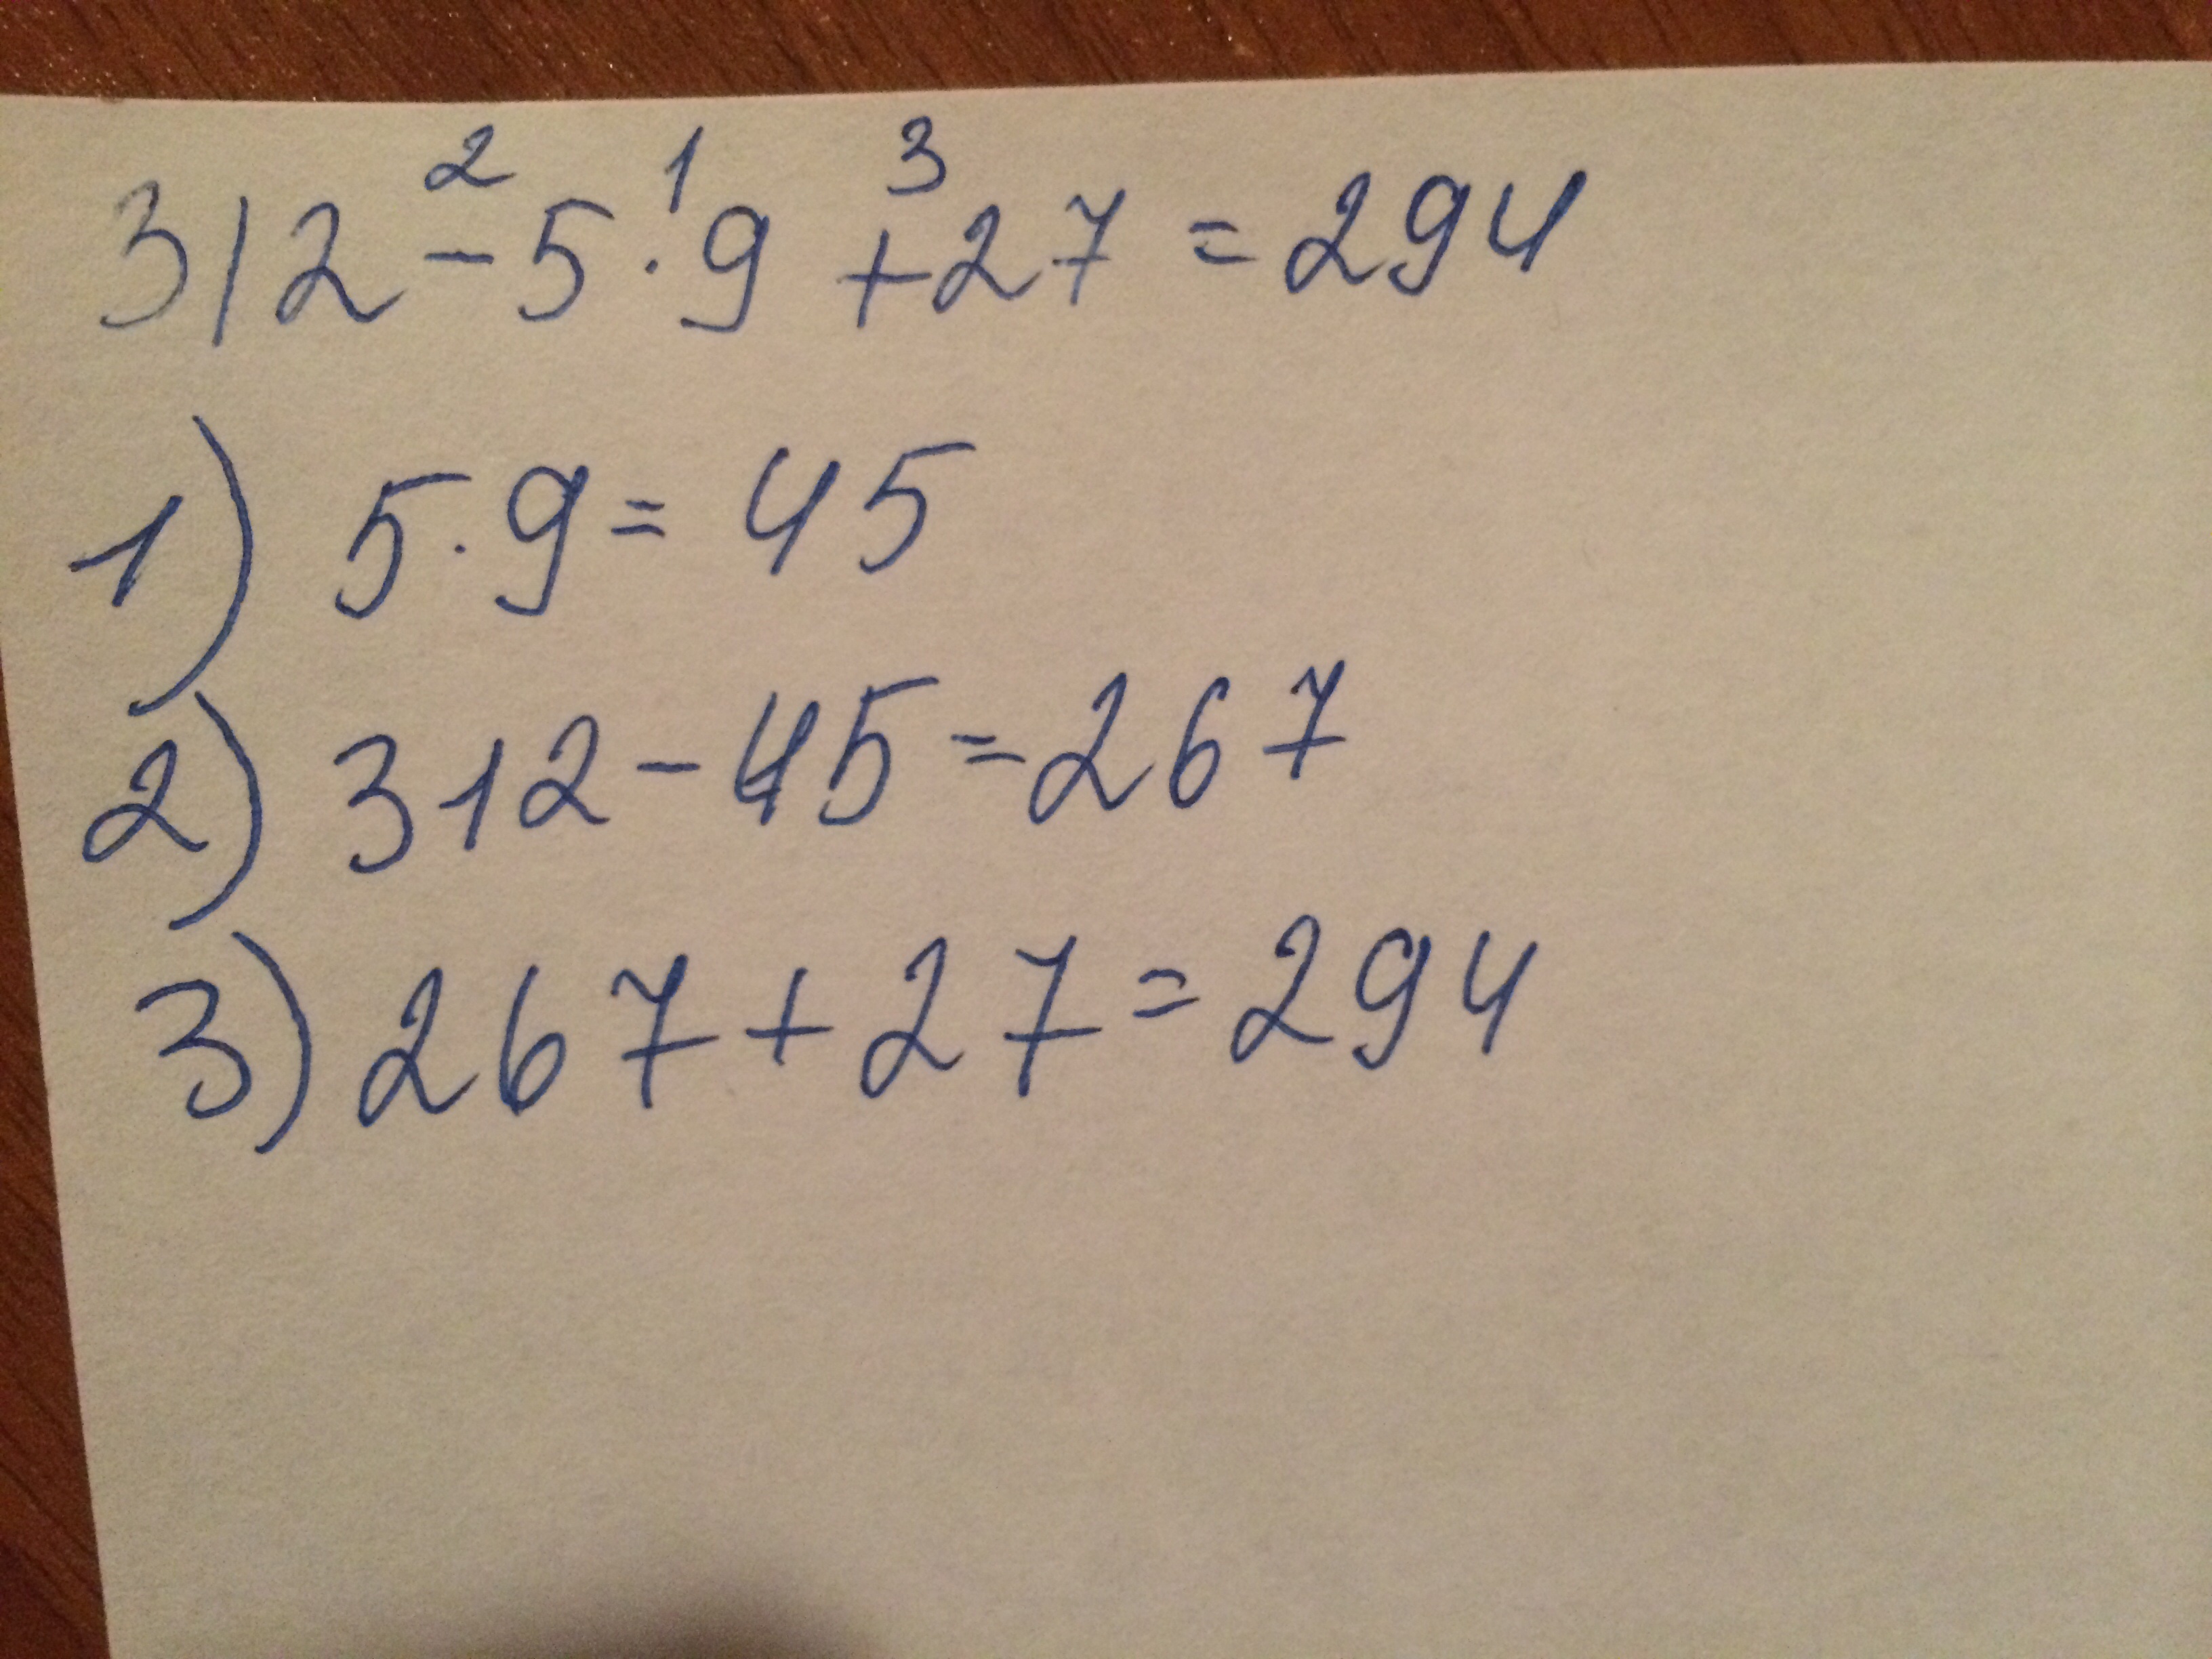 312 - 5 · 9 + 27 = 294
2 1 3
1) 5 · 9 = 45
2) 312 - 45 = 267
3) 267 + 27 = 294